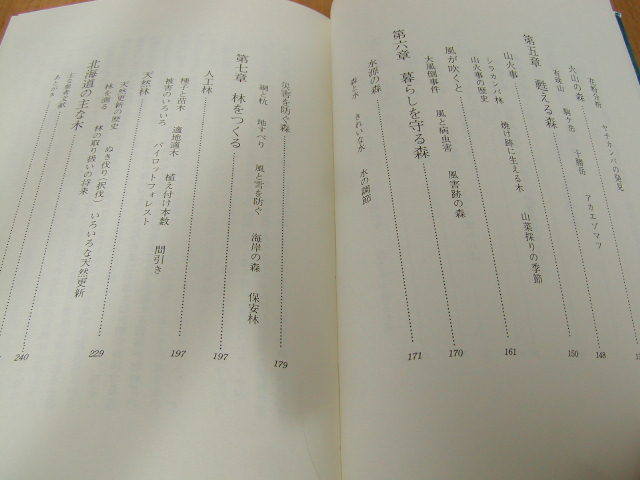 花粉分析 ヤチカンバの発見
148
第五章 甦える森
150
火山の森 アカエゾマツ
有珠山 駒ケ岳 十勝岳
山火事
161
シラカンバ林 焼け跡に生える木 山菜採りの季節
山火事の歴史
風が吹くと
170
大風倒事件 風と病虫害 風害跡の森
第六章 暮らしを守る森
171
水源の森
森と水 きれいな水 水の調節
災害を防ぐ森
179
崩れ 地すべり 風と雪を防ぐ 海岸の森 保安林
第七章 林をつくる
197
人工林
197
種子と苗木 適地適木 植え付け本数 間引き
被害のいろいろ パイロットフォレスト
天然林
229
天然更新の歴史 ぬき伐り(択伐) いろいろな天然更新
林を測る 林の取り扱いの将来
北海道の主な木
240
主な参考文献
あとがき